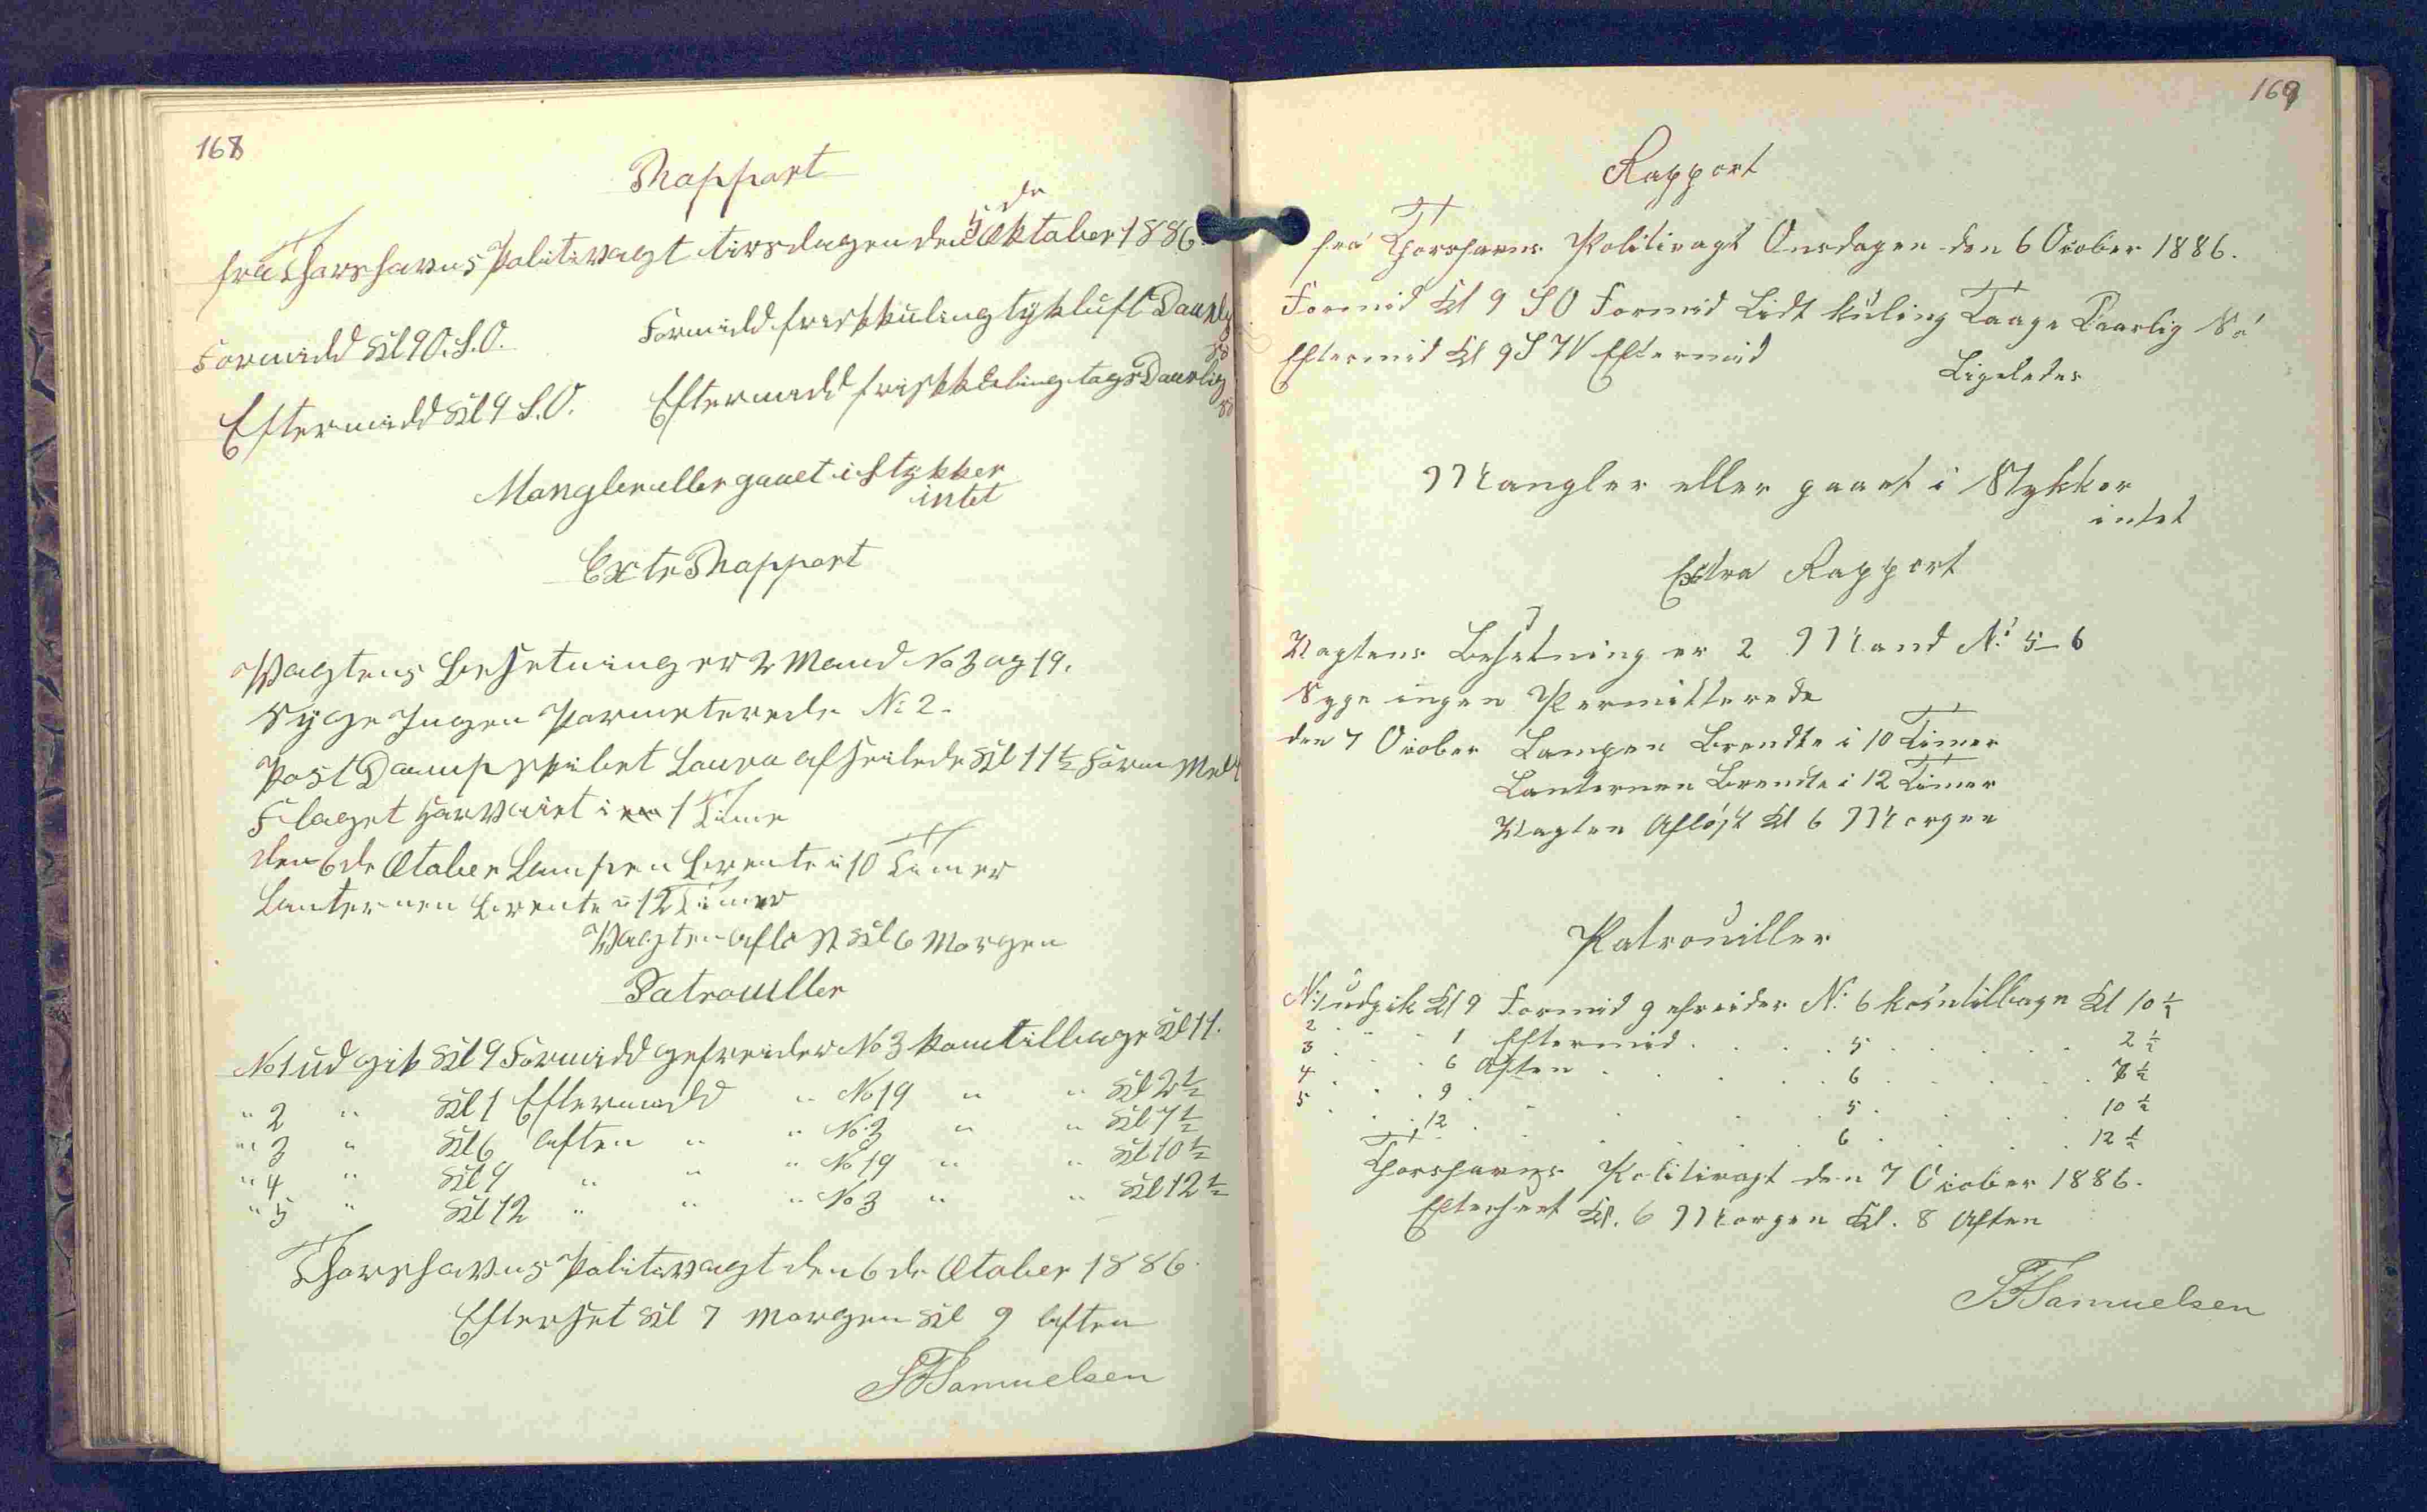 168
Rapport
fra Thorshavns Politivagt tirsdagen den 5 de Oktober 1886.
Formidd Kl 9 O.S.O. Formidd friskkuling tykluft Daarlig
Sö
Eftermidd Kl 9 S.O. Eftermidd friskkuling tage Daarlig
Sö
Mangler eller gaaet i Stykker
intet
Extr Rapport
Vagtens Besetning er 2 Mand No 3 og 19.
Syge Ingen Parmeterede No 2.
Post Dampskibet Laura afseilede Kl 11 1/2 Form
Flaget Har Vaiet i 1 Time
den 6 de Otober Lampen brente i 10 Timer
Lanternen brente i 12 Timer
Vagten aflöst Kl 6 Morgen
Patrouiller
No 1 udgik Kl 9 Formidd gefreider No 3 kom tilbage Kl 11.
" 2 " Kl 1 Eftermidd " No 19 " " Kl 2 1/2
" 3 " Kl 6 Aften " " No. 3 " " Kl 7 1/2
" 4 " Kl 9 " " " No 19 " " Kl 10 1/2
" 5 " Kl 12 " " " No 3 " " Kl 12 1/2
Thorshavns Politivagt den 6 de Otober 1886.
Efterset Kl 7 Morgen Kl 9 Aften
Samuelsen
169
Rapport
fra Thorshavns Politivagt Onsdagen den 6 October 1886.
Formid Kl 9 SO Formid Lidt kuling Taage Daarlig Sö
Eftermid Kl 9 SW Eftermid
Ligeledes
Mangler eller gaaet i Stykker
intet
Extra Rapport
Vagtens Besetning er 2 Mand No 5 - 6
Syge ingen Permitterede
den 7 October Lampen Brendte i 10 Timer
Lanternen Brendte i 12 Timer
Vagten Afløst Kl 6 Morgen
Patrouiller
No 1 udgik Kl 9 Formid gefreider No. 6 kom tilbage Kl 10 1/2
2 . . . 1 Eftermid . . . 5 . . . 2 1/2
3 . . . 6 Aften . . . 6 . . . 7 1/2
4 . . . 9 . . . 5 . . . 10 1/2
5 . . . 12 . . . 6 . . . 12 1/2
Thorshavns Politivagt den 7 October 1886.
Efterseet Kl. 6 Morgen Kl. 8 Aften
Samuelsen